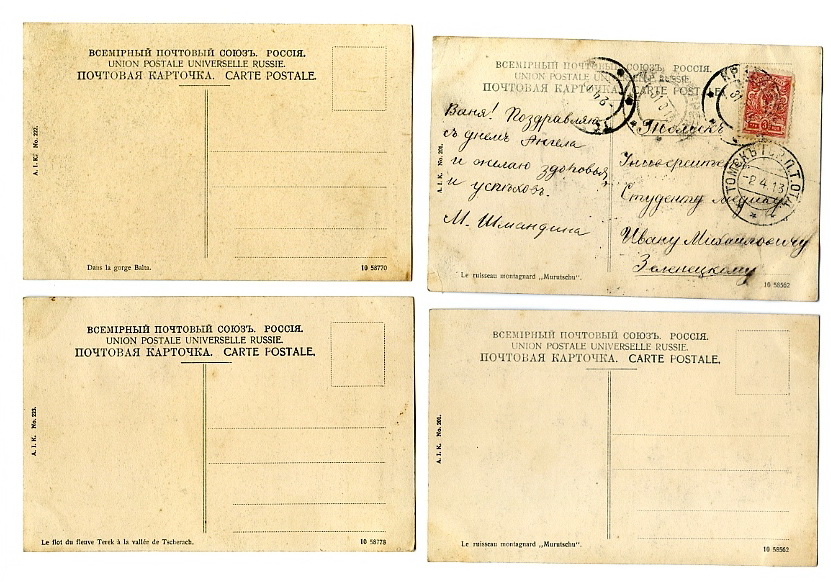 ВСЕМІРНЫЙ ПОЧТОВЫЙ СОЮЗЪ. РОССІЯ.
UNION POSTALE UNIVERSELLE RUSSIE.
ПОЧТОВАЯ КАРТОЧКА. CARTE POSTALE.
A. I. K. No. 227.
Dans la gorge Balta.
10 58770
ВСЕМІРНЫЙ ПОЧТОВЫЙ СОЮЗЪ. РОССІЯ.
UNION POSTALE UNIVERSELLE RUSSIE.
ПОЧТОВАЯ КАРТОЧКА. CARTE POSTALE.
A. I. K. No. 201.
Ваня! Поздравляю
съ днемъ Ангела
и желаю здоровья
и успѣховъ.
М. Шмандина
Томскъ
Университетъ
Студенту медику
Ивану Михайловичу
Зеленецкому
ТОМСКЪ
-2.4.13
Le ruisseau montagnard „Muratschu".
10 58562
ВСЕМІРНЫЙ ПОЧТОВЫЙ СОЮЗЪ. РОССІЯ.
UNION POSTALE UNIVERSELLE RUSSIE.
ПОЧТОВАЯ КАРТОЧКА. CARTE POSTALE.
A. I. K. No. 223.
Le flot du fleuve Terek à la vallée de Tscherach.
10 58778
ВСЕМІРНЫЙ ПОЧТОВЫЙ СОЮЗЪ. РОССІЯ.
UNION POSTALE UNIVERSELLE RUSSIE.
ПОЧТОВАЯ КАРТОЧКА. CARTE POSTALE.
A. I. K. No. 201.
Le ruisseau montagnard „Muratschu".
10 58562